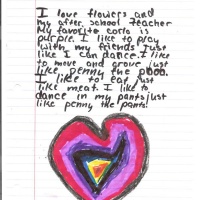 I love flowers and
my after school teacher
My favorite corlo is
purple. I like to pray
with my friends Just
like I can dance. I like
to move and grove just
like penny the
I like to eat just
like meat. I like to
dance in my pants just
like penny the pants.